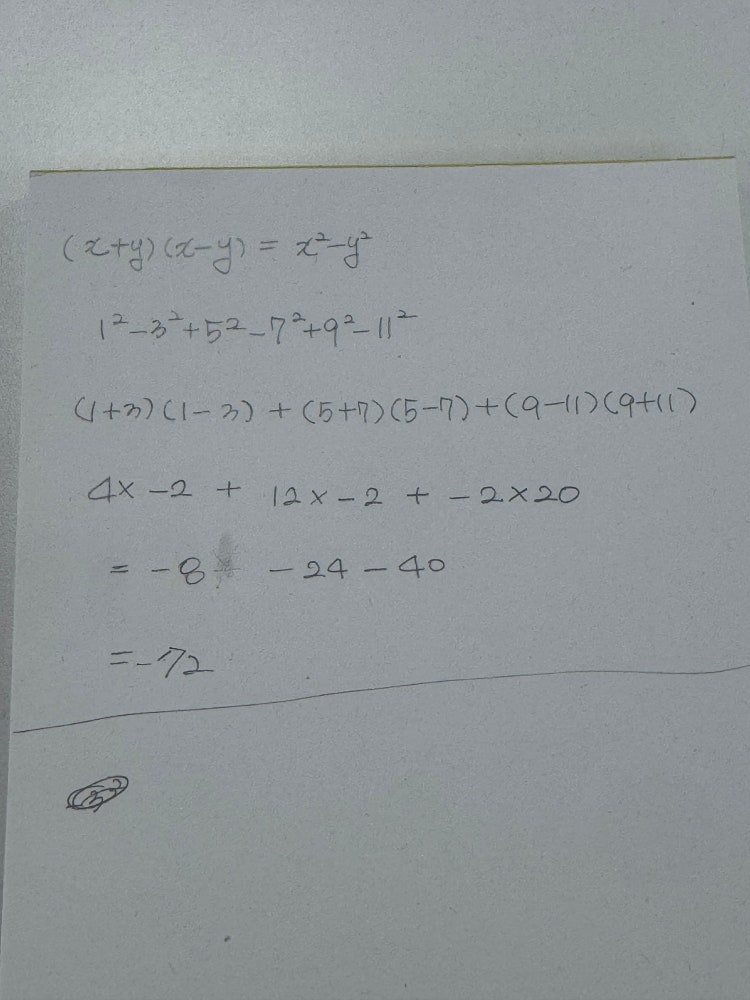 (x+y)(x-y) = x²-y²
1²-3²+5²-7²+9²-11²
(1+3)(1-3) + (5+7)(5-7)+(9-11)(9+11)
4x -2 + 12x-2 + -2x20
= -8 -24-40
=-72